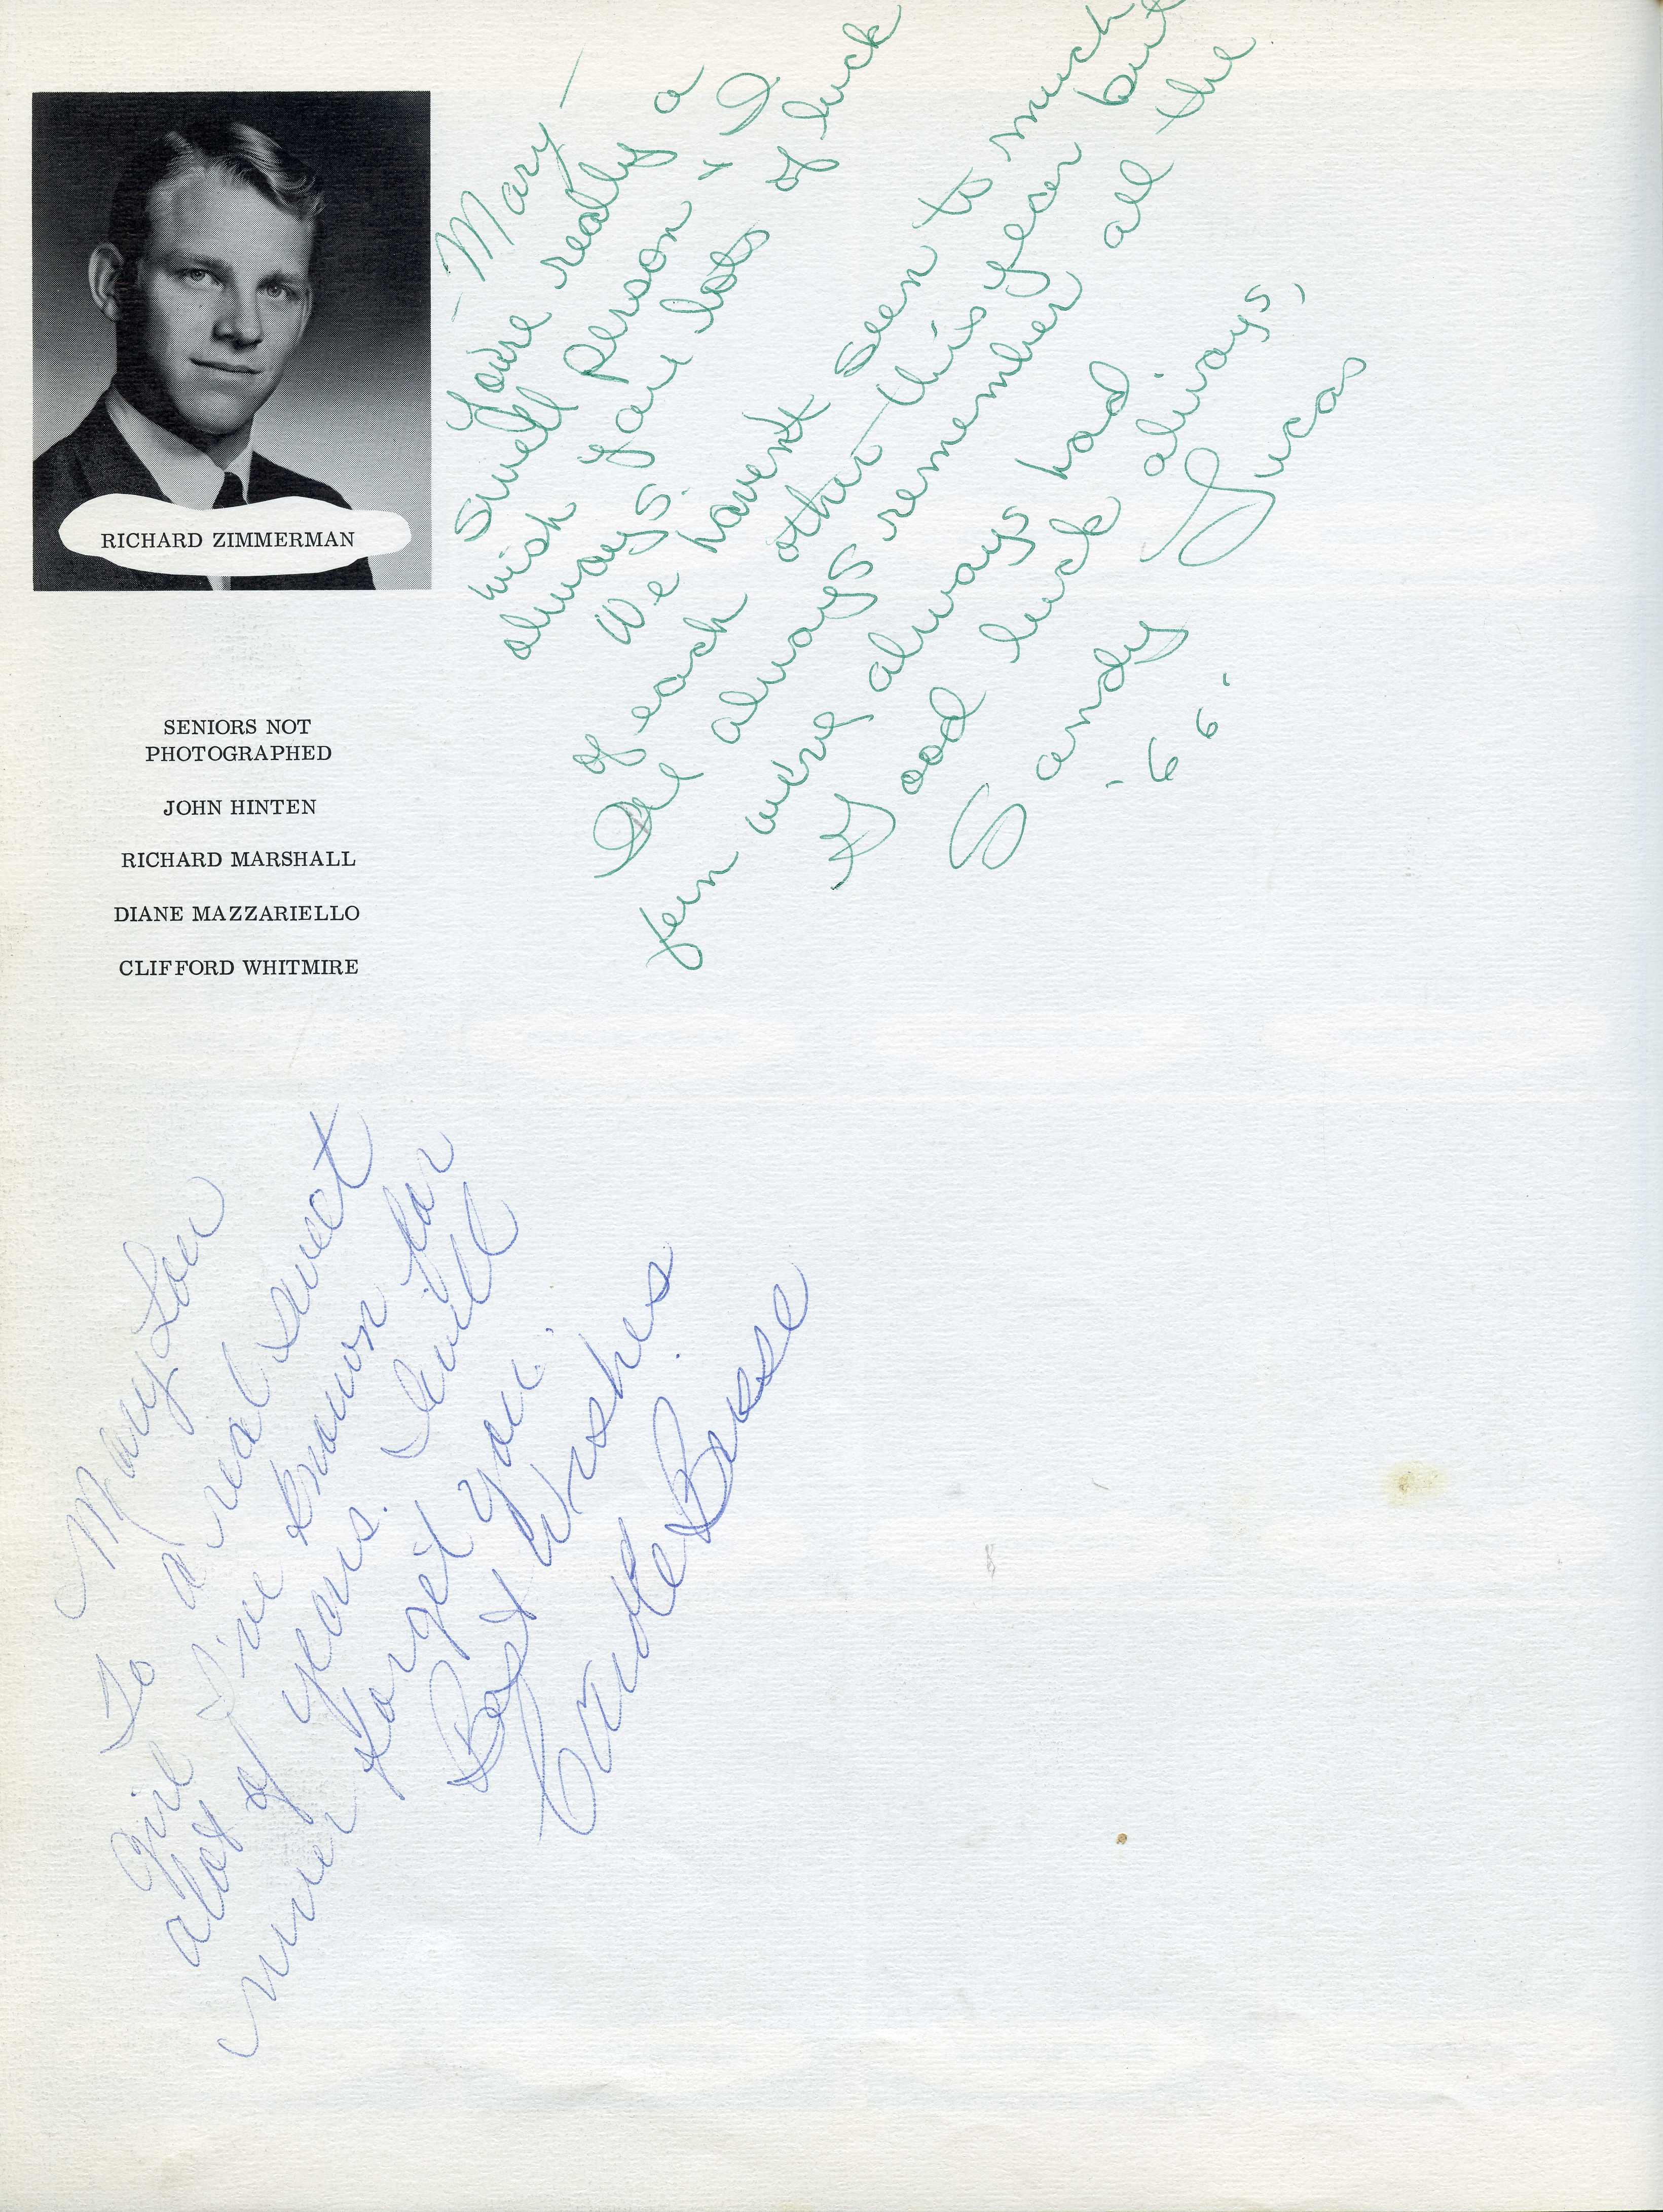 RICHARD ZIMMERMAN
SENIORS NOT
PHOTOGRAPHED
JOHN HINTEN
RICHARD MARSHALL
DIANE MAZZARIELLO
CLIFFORD WHITMIRE
-Mary-
You're really a
swell person & I
wish you lots of luck
always.
We havent seen to much
of each other this year but
I'll always remember all the
fun we've always had.
Good luck always,
Sandy Lucas
'66'
Mary Lou
To a real sweet
girl I've known for
alot of years. I will
never forget you.
Best Wishes
Busse